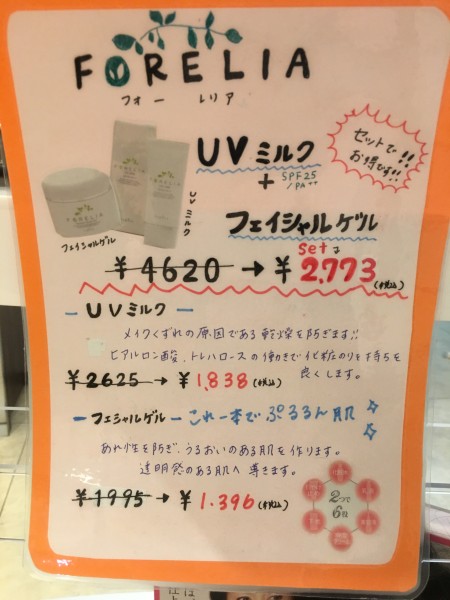 FORELIA
フォーレリア
FORELIA
フェイシャルゲル
UVミルク
UVミルク
SPF25
/PA++
+
フェイシャルゲル
セットで
お得です!!
setは
¥4620→¥2,773(税込)
ーUVミルクー
メイクくずれの原因である乾燥を防ぎます!!
ヒアルロン酸、トレハロースの働きで化粧のり&持ちを
良くします。
¥2625→¥1,838(税込)
ーフェシャルゲルーこれ一本でぷるるん肌
あれ性を防ぎ、うるおいのある肌を作ります。
透明感のある肌へ導きます。
¥1995→¥1.396(税込)
2つで
6役